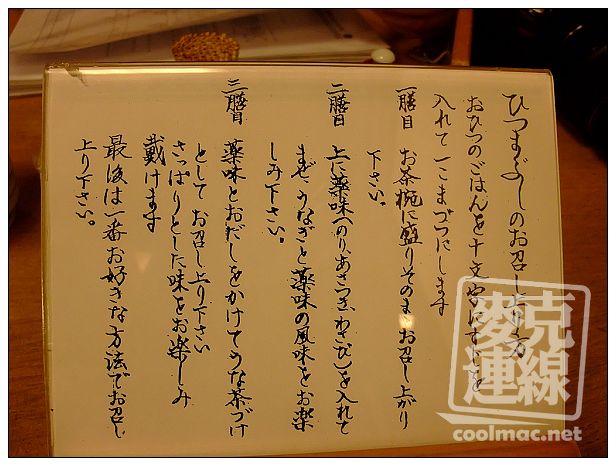 ひつまぶしのお召し上り方
おひつのごはんを十文字にすじを
入れて一こまづつにします
一膳目 お茶椀に盛りそのままお召し上がり
下さい。
二膳目 上に薬味(のり、あさつき、わさび)を入れて
まぜ うなぎと薬味の風味をお楽
しみ下さい。
三膳目 薬味とおだしをかけてうな茶づけ
として お召し上り下さい
さっぱりとした味をお楽しみ
戴けます
最後は一番お好きな方法でお召し
上り下さい。
麥克
連線
coolmac.net